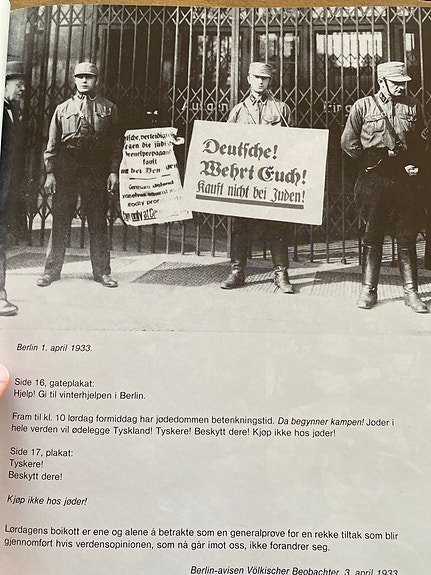 Ausgan
utsche, verteidig
gen die jüdi
kauft
Germans defend
Deutsche!
Wehrt Euch!
Kauft nicht bei Juden!
Berlin 1. april 1933.
Side 16, gateplakat:
Hjelp! Gi til vinterhjelpen i Berlin.
Fram til kl. 10 lørdag formiddag har jødedommen betenkningstid. Da begynner kampen! Jøder i
hele verden vil ødelegge Tyskland! Tyskere! Beskytt dere! Kjøp ikke hos jøder!
Side 17, plakat:
Tyskere!
Beskytt dere!
Kjøp ikke hos jøder!
Lørdagens boikott er ene og alene å betrakte som en generalprøve for en rekke tiltak som blir
gjennomført hvis verdensopinionen, som nå går imot oss, ikke forandrer seg.
Berlin-avisen Völkischer Beobachter, 3. april 1933